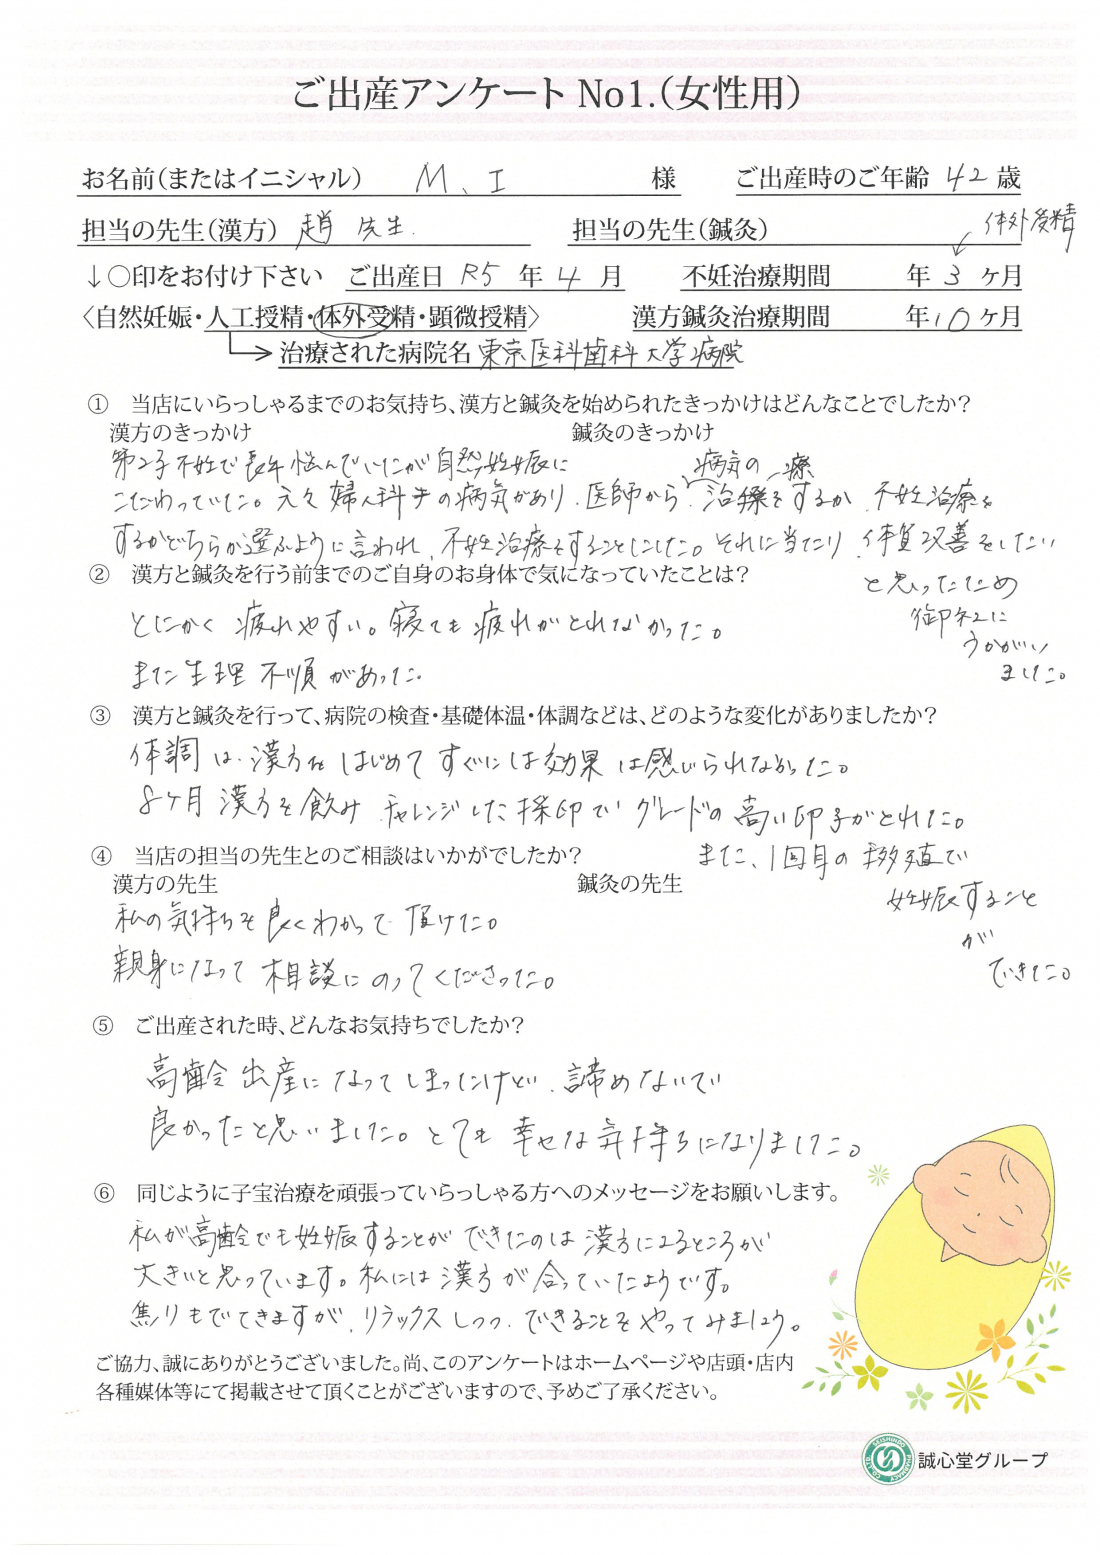 ご出産アンケート No1.(女性用)
お名前(またはイニシャル) M、I 様 ご出産時のご年齢 42 歳
担当の先生(漢方) 趙 先生. 担当の先生(鍼灸)
体外受精
↓○印をお付け下さい ご出産日 R5 年 4 月 不妊治療期間 年 3 ヶ月
〈自然妊娠・人工授精・体外受精・顕微授精〉 漢方鍼灸治療期間 年 10 ヶ月
治療された病院名 東京医科歯科大学病院
① 当店にいらっしゃるまでのお気持ち、漢方と鍼灸を始められたきっかけはどんなことでしたか?
漢方のきっかけ 鍼灸のきっかけ
第2子不妊で長年悩んでいたが自然妊娠に
病気の 療
こだわっていた。元々婦人科系の病気があり、医師から治療をするか、不妊治療を
するかどちらか選ぶように言われ、不妊治療をすることにした。それに当たり、体質改善をしたい
と思ったため
御社に
うかがい
ました。
② 漢方と鍼灸を行う前までのご自身のお身体で気になっていたことは?
とにかく疲れやすい。寝ても疲れがとれなかった。
また生理不順があった。
③ 漢方と鍼灸を行って、病院の検査・基礎体温・体調などは、どのような変化がありましたか?
体調は、漢方をはじめてすぐには効果は感じられなかった。
8ヶ月漢方を飲み、チャレンジした採卵でグレードの高い卵子がとれた。
また、1回目の移植で
妊娠すること
が
できた。
④ 当店の担当の先生とのご相談はいかがでしたか?
漢方の先生 鍼灸の先生
私の気持ちを良くわかって頂けた。
親身になって相談にのってくださった。
⑤ ご出産された時、どんなお気持ちでしたか?
高齢出産になってしまったけど、諦めないで
良かったと思いました。とても幸せな気持ちになりました。
⑥ 同じように子宝治療を頑張っていらっしゃる方へのメッセージをお願いします。
私が高齢でも妊娠することができたのは漢方によるところが
大きいと思っています。私には漢方が合っていたようです。
焦りもでてきますが、リラックスしつつ、できることをやってみましょう。
ご協力、誠にありがとうございました。尚、このアンケートはホームページや店頭・店内
各種媒体等にて掲載させて頂くことがございますので、予めご了承ください。
誠心堂グループ